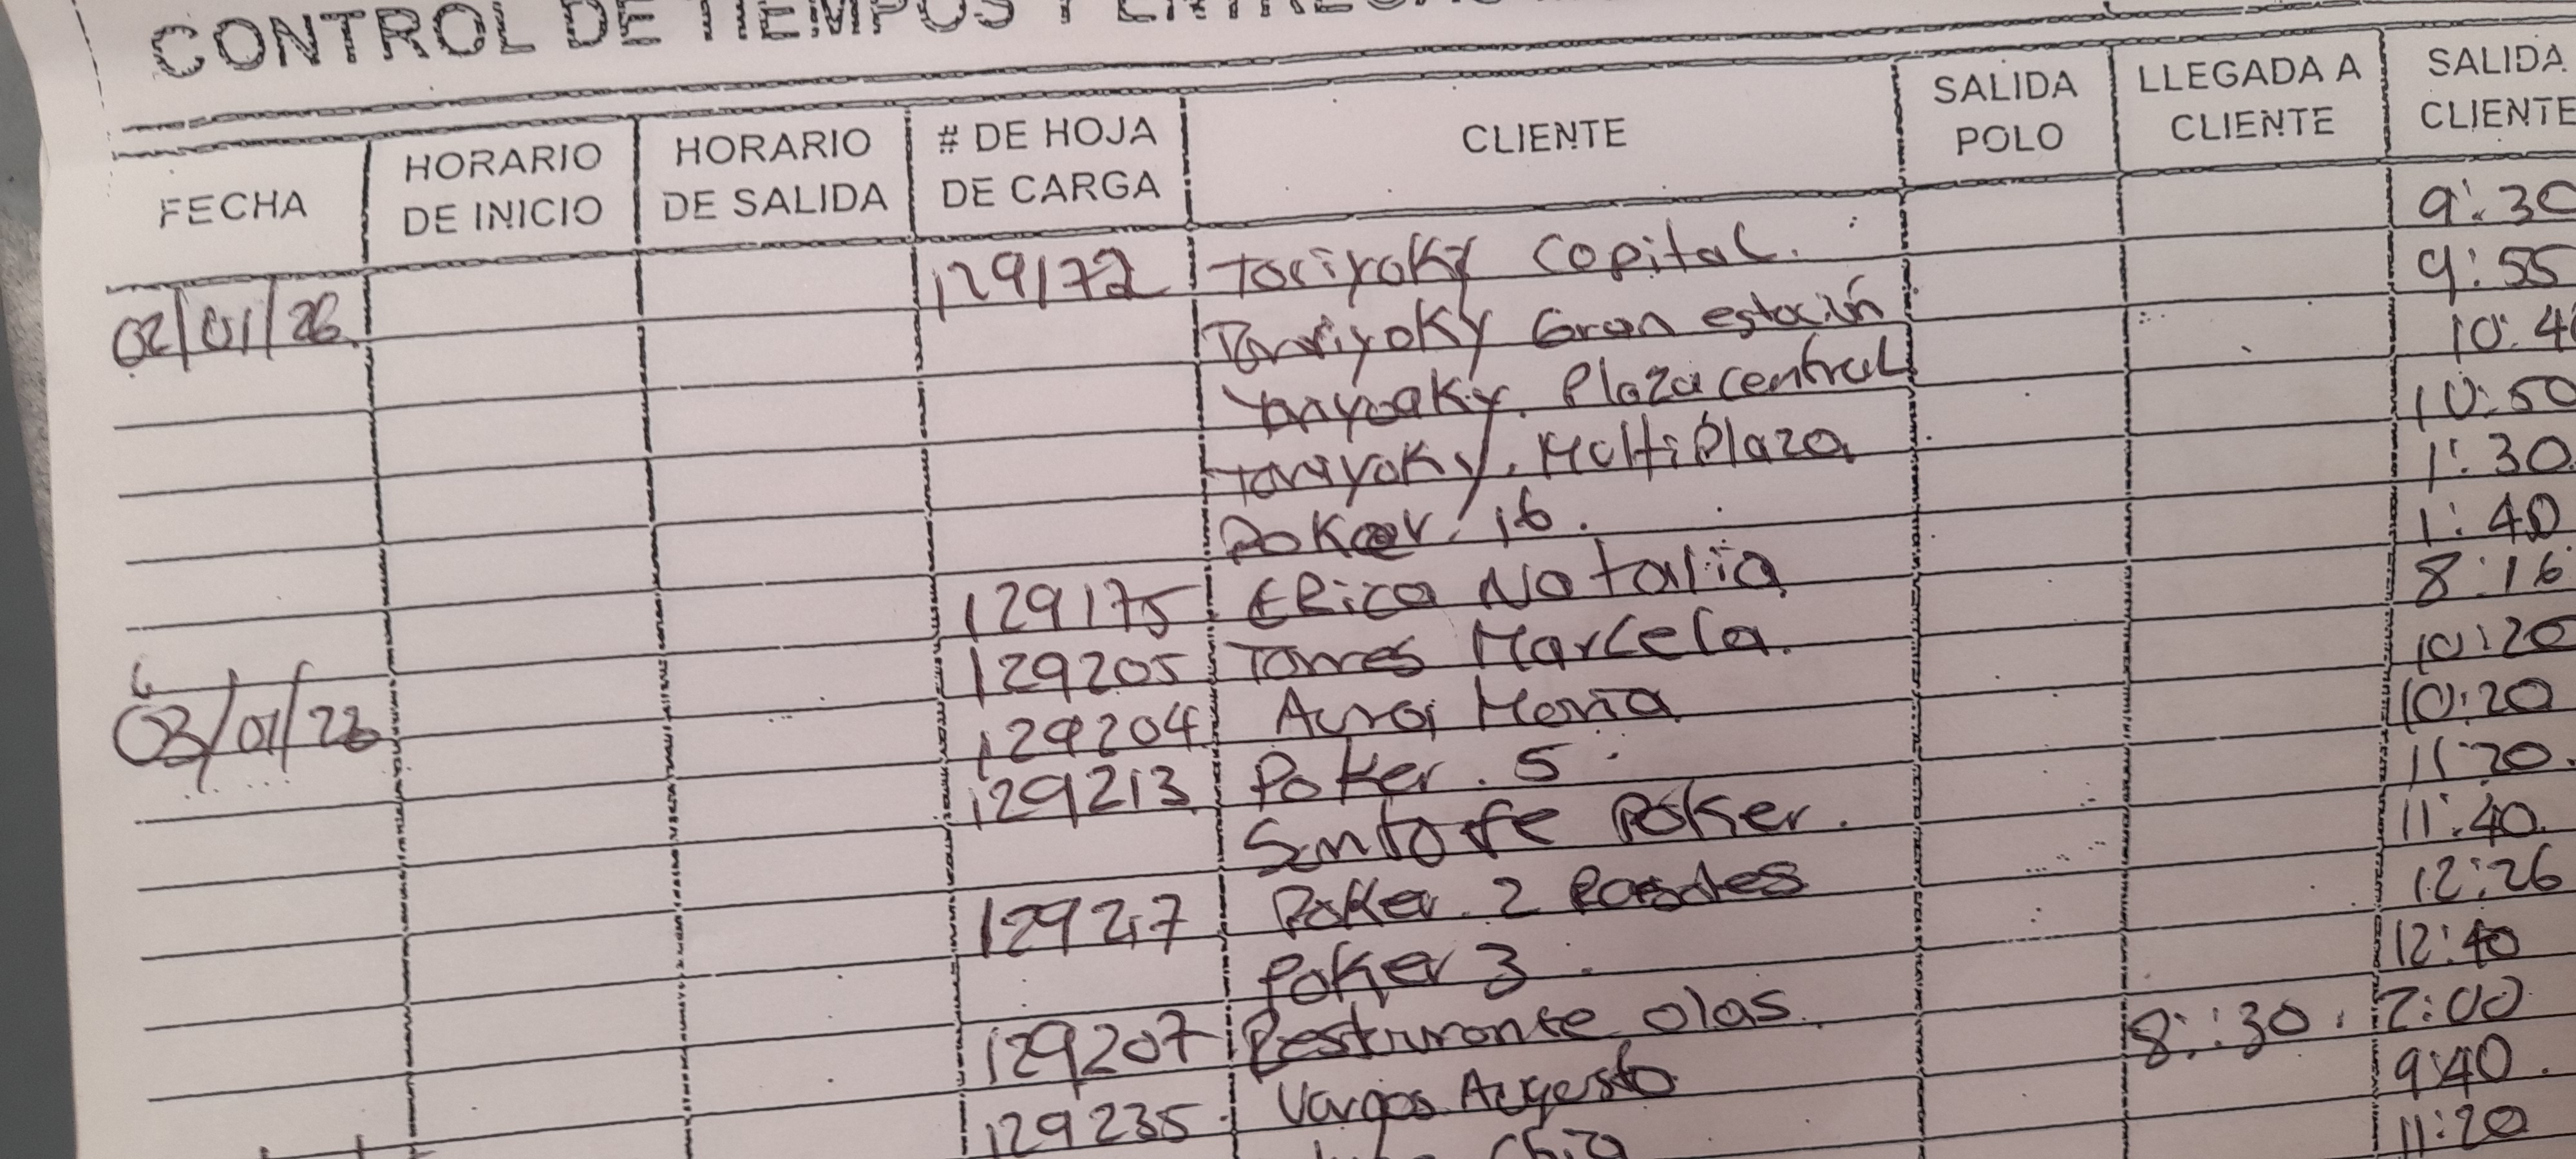 CONTROL DE TIEMPOS Y ENTREGAS
FECHA HORARIO DE INICIO HORARIO DE SALIDA # DE HOJA DE CARGA CLIENTE SALIDA POLO LLEGADA A CLIENTE SALIDA CLIENTE
129172 Toriyoky Capital. 9:30
02/01/26 Toriyoky Gran estación 9:55
Yoriyoaky. Plaza central 10:4
Toriyoky. MultiPlaza 10:50
Poker. 16. 1:30
129175 Erica Natalia 1:40
129205 Torres Marcela. 8:16
03/01/26 129204 Aura Maria 10:20
129213 Poker. 5 10:20
Santa fe Poker. 11:20.
129217 Poker. 2 11:40.
Poker 3 12:26
129207 Resturante olas. 12:40
129235 Vargas Augusto 8:30. 2:00
9:40.
Chia 11:20